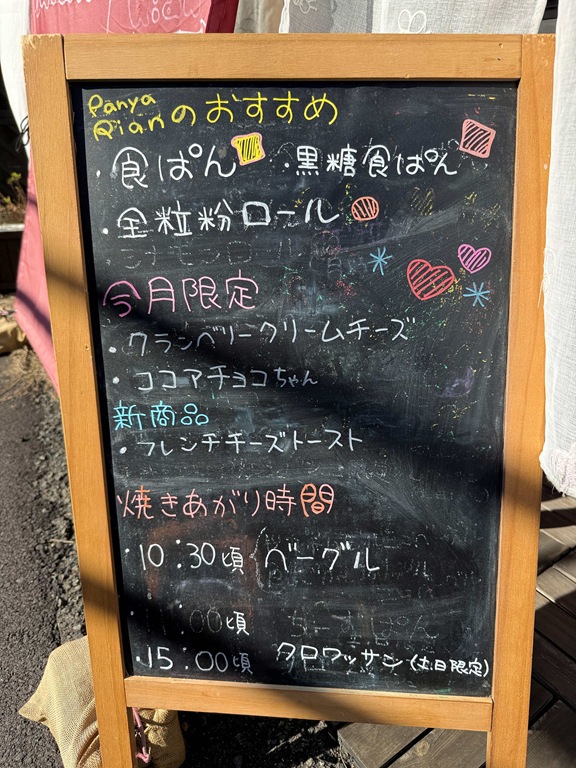 Panya
Qianのおすすめ
・食ぱん ・黒糖食ぱん
・全粒粉ロール
今月限定
・クランベリークリームチーズ
・ココアチョコちゃん
新商品
・フレンチチーズトースト
焼きあがり時間
・10:30頃 ベーグル
:00頃
・15:00頃 クロワッサン(土日限定)